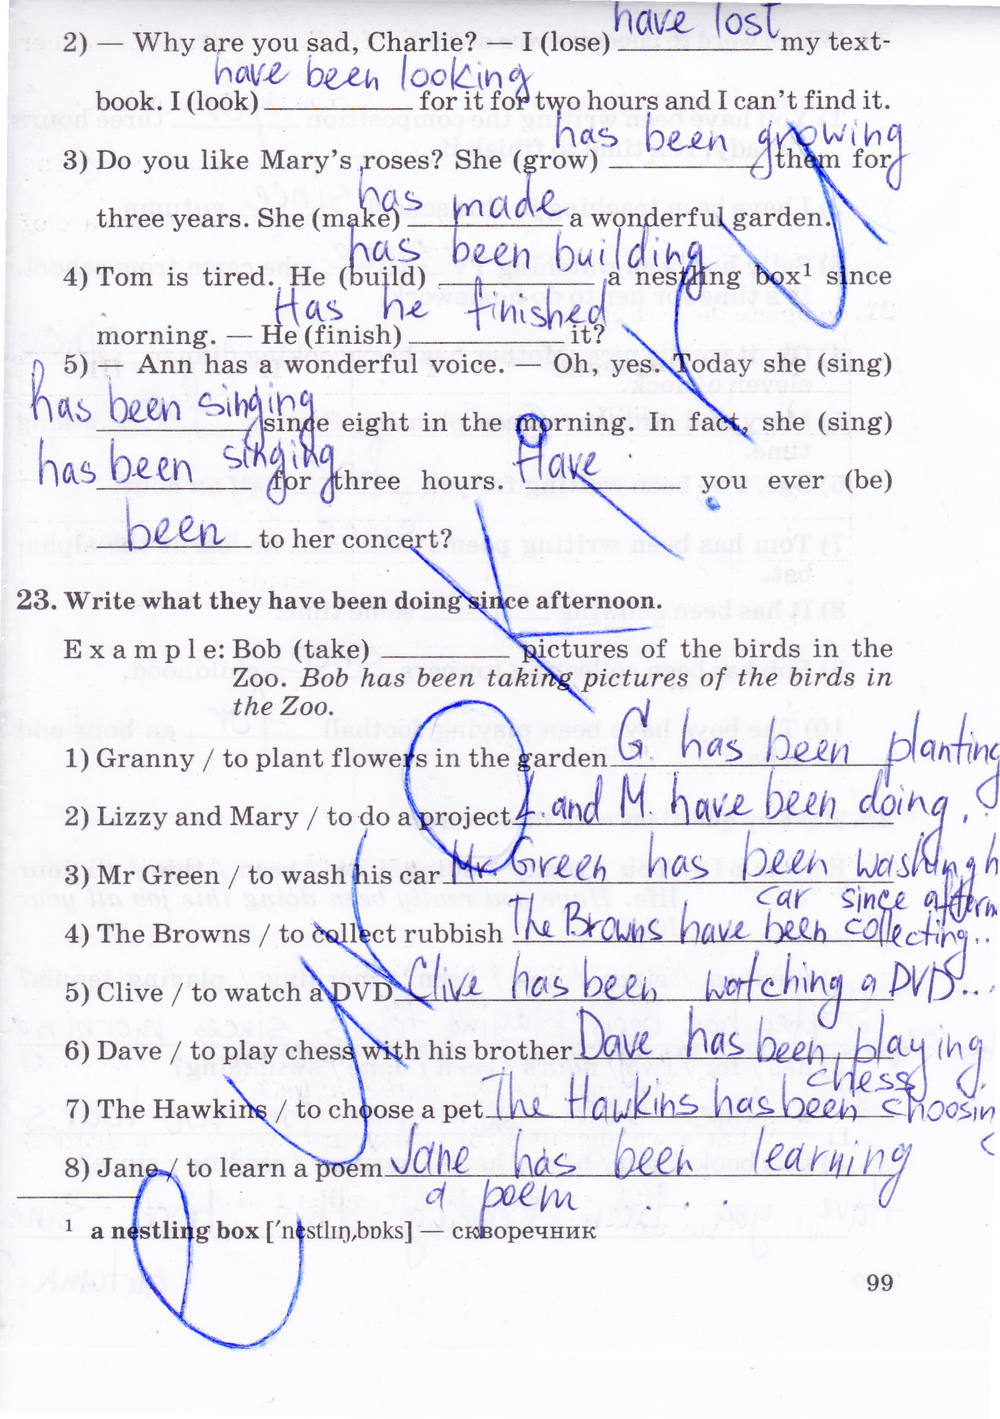 have lost
2) — Why are you sad, Charlie? — I (lose) ________ my text-
have been looking
book. I (look) ________ for it for two hours and I can't find it.
has been growing
3) Do you like Mary's roses? She (grow) ________ them for
has made
three years. She (make) ________ a wonderful garden.
has been building
4) Tom is tired. He (build) ________ a nestling box¹ since
Has he finished
morning. — He (finish) ________ it?
5) — Ann has a wonderful voice. — Oh, yes. Today she (sing)
has been singing since eight in the morning. In fact, she (sing)
has been singing for three hours. Have you ever (be)
been to her concert?
23. Write what they have been doing since afternoon.
Example: Bob (take) ________ pictures of the birds in the
Zoo. Bob has been taking pictures of the birds in
the Zoo.
1) Granny / to plant flowers in the garden G. has been planting
2) Lizzy and Mary / to do a project L. and M. have been doing...
3) Mr Green / to wash his car Mr Green has been washing h
car since aftern
4) The Browns / to collect rubbish The Browns have been collecting...
5) Clive / to watch a DVD Clive has been watching a DVD...
6) Dave / to play chess with his brother Dave has been playing
chess
7) The Hawkins / to choose a pet The Hawkins has been choosin
8) Jane / to learn a poem Jane has been learning
a poem...
¹ a nestling box [ˈnestlɪŋˌbɒks] — скворечник
99